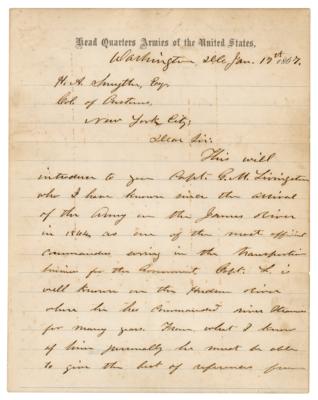 Head Quarters Armies of the United States,
Washington, Jan. 1867.
H. A. Smythe, Esq.
Col. of Customs,
New York City;
Dear Sir:
This will
introduce to you Capt. G. M. Livingston
who I have known since the arrival
of the Army on the James River
in 1864, as one of the most efficient
commanders serving in the transportation
business for the Government. Capt. L. is
well known on the Hudson river
where he has commanded river steamers
for many years. From what I know
of him personally he must be able
to give the best of references from